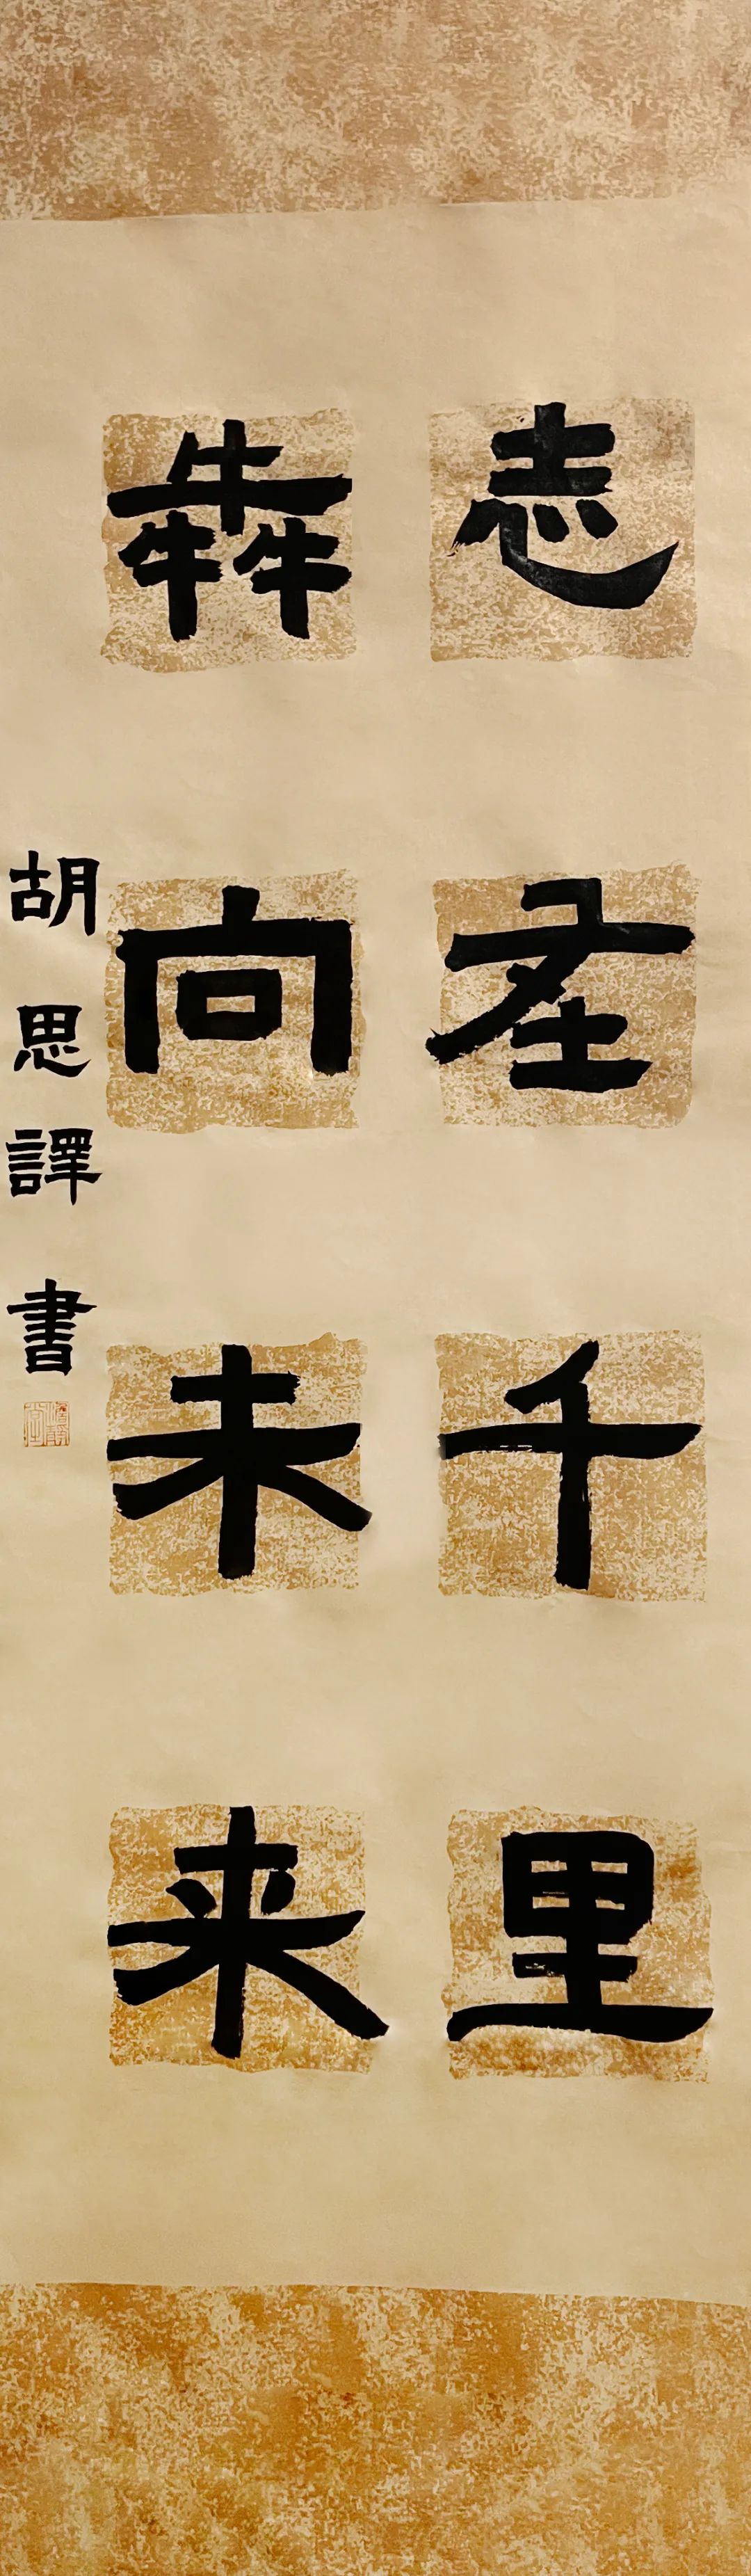 志在千里
犇向未来
胡思譯書